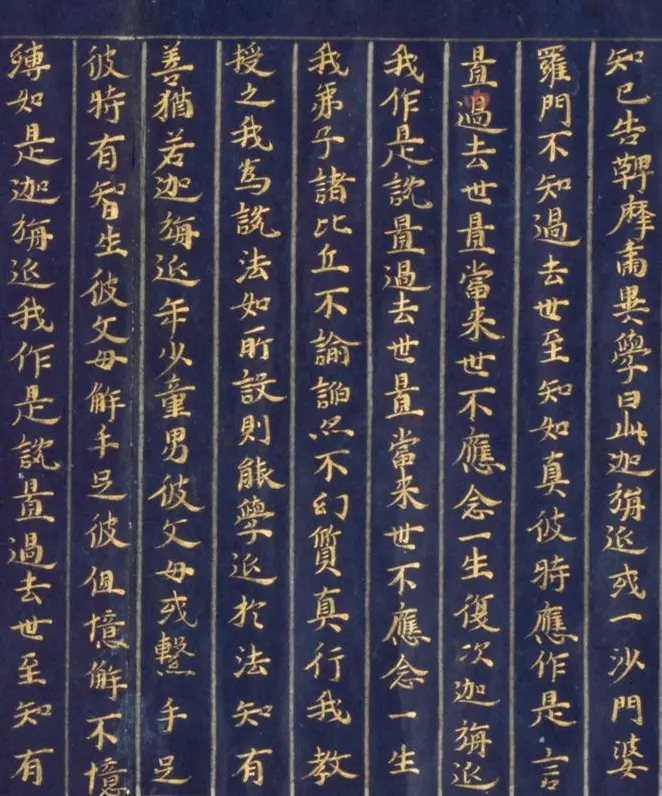 知已告鞞摩肅異學曰此迦旃延或一沙門婆
羅門不知過去世至知如真彼時應作是言
置過去世置當来世不應念一生復次迦旃延
我作是說置過去世置當来世不應念一生
我弟子諸比丘不諭諂亦不幻質真行我教
授之我為說法如所設則能學近於法知有
善猶若迦旃延年少童男彼父母或繫手足
彼時有智生彼父母解手足彼但憶解不憶
縛如是迦旃延我作是說置過去世至知有